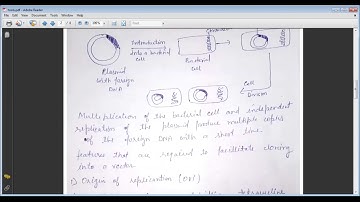 Introduction
into a bacterial
cell
Plasmid
with foreign
DNA
Bacterial
cell
Cell
Division
Multiplication of the bacterial cell and independent
replication of the plasmid produce multiple copies
of the foreign DNA with a short time.
features that are required to facilitate cloning
into a vector
1) Origin of replication (ORI)